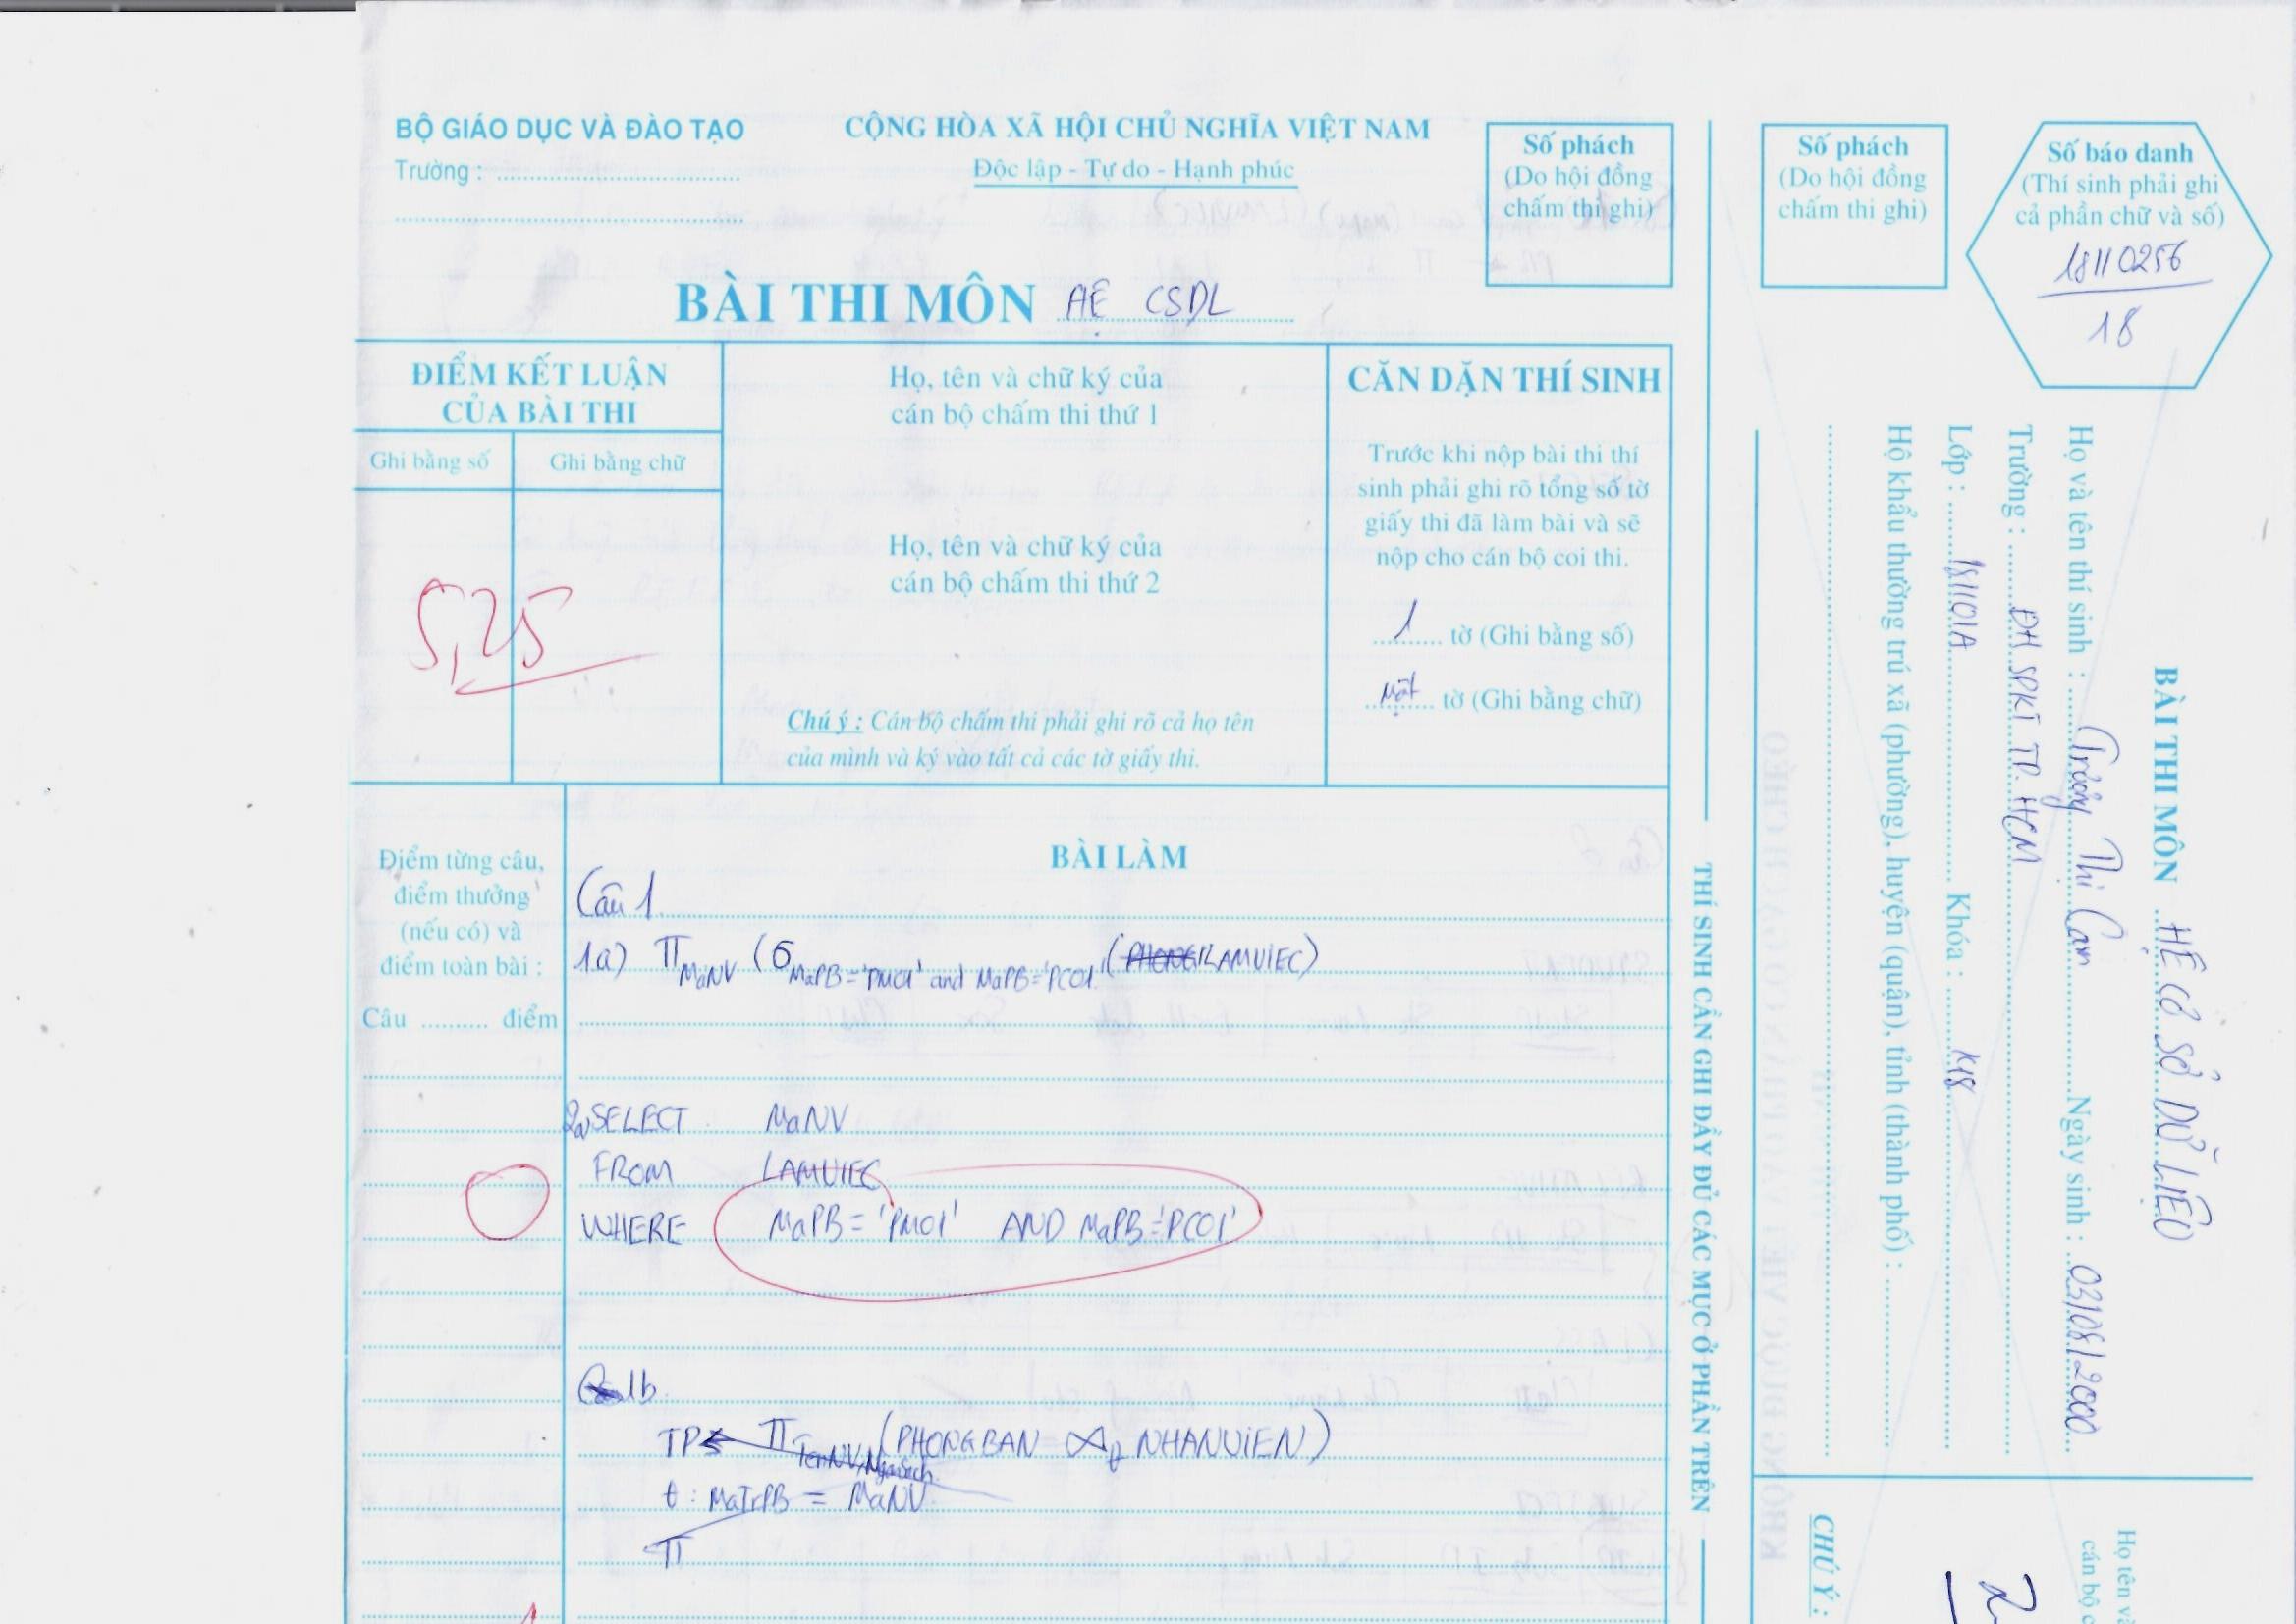 BỘ GIÁO DỤC VÀ ĐÀO TẠO
Trường :
CỘNG HÒA XÃ HỘI CHỦ NGHĨA VIỆT NAM
Độc lập - Tự do - Hạnh phúc
Số phách
(Do hội đồng
chấm thi ghi)
BÀI THI MÔN CSDL
ĐIỂM KẾT LUẬN
CỦA BÀI THI
Ghi bằng số
Ghi bằng chữ
5,25
Họ, tên và chữ ký của
cán bộ chấm thi thứ 1
Họ, tên và chữ ký của
cán bộ chấm thi thứ 2
Chú ý : Cán bộ chấm thi phải ghi rõ cả họ tên
của mình và ký vào tất cả các tờ giấy thi.
CĂN DẶN THÍ SINH
Trước khi nộp bài thi thí
sinh phải ghi rõ tổng số tờ
giấy thi đã làm bài và sẽ
nộp cho cán bộ coi thi.
1 tờ (Ghi bằng số)
Một tờ (Ghi bằng chữ)
Điểm từng câu,
điểm thưởng
(nếu có) và
điểm toàn bài :
Câu .......... điểm
BÀI LÀM
Câu 1
1a) π MaNV (σ MaPB='PM01' and MaPB='PC01' (LAMVIEC)
2a, SELECT MaNV
FROM LAMVIEC
WHERE MaPB = 'PM01' AND MaPB='PC01'
1b.
TP ← π TenNV, (PHONGBAN ⋈ t NHANVIEN)
t : MaTrPB = MaNV
π
THÍ SINH CẦN GHI ĐẦY ĐỦ CÁC MỤC Ở PHẦN TRÊN
Số phách
(Do hội đồng
chấm thi ghi)
Số báo danh
(Thí sinh phải ghi
cả phần chữ và số)
18110256
18
BÀI THI MÔN HỆ CƠ SỞ DỮ LIỆU
Họ và tên thí sinh : Thị Cam Ngày sinh : 03/08/2000
Trường : ĐH SPKT TP. HCM
Lớp : 181101A Khóa : K18
Hộ khẩu thường trú xã (phường), huyện (quận), tỉnh (thành phố) :
CHÚ Ý :
Họ tên và
cán bộ